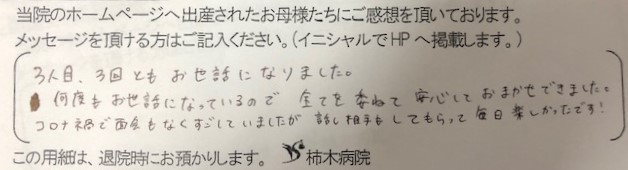 当院のホームページへ出産されたお母様たちにご感想を頂いております。
メッセージを頂ける方はご記入ください。(イニシャルでHPへ掲載します。)
3人目、3回ともお世話になりました。
何度もお世話になっているので 全てを委ねて 安心しておまかせできました。
コロナ禍で面会もなくすごしていましたが 話し相手もしてもらって 毎日楽しかったです!
この用紙は、退院時にお預かりします。 柿木病院